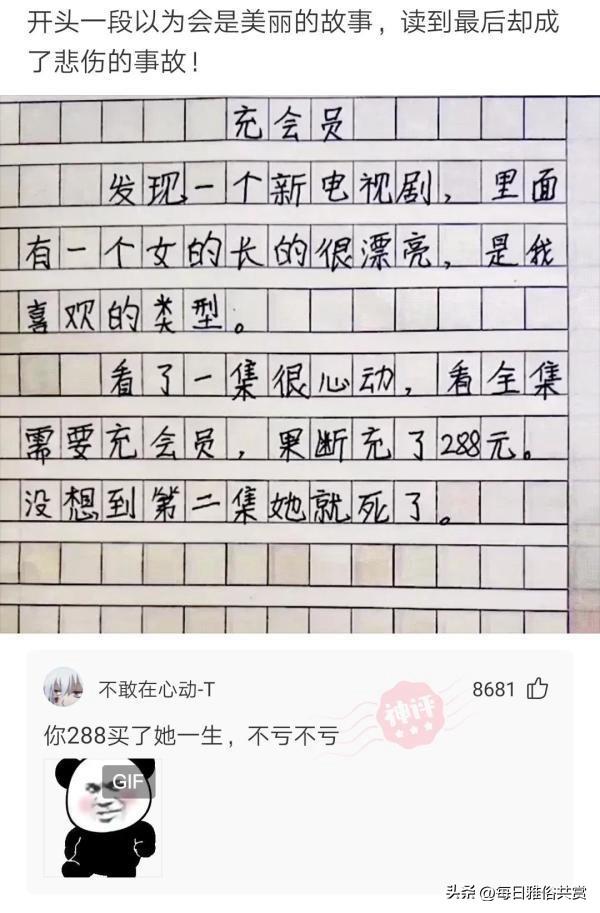 开头一段以为会是美丽的故事，读到最后却成
了悲伤的事故！
充会员
发现一个新电视剧，里面
有一个女的长的很漂亮，是我
喜欢的类型。
看了一集很心动，看全集
需要充会员，果断充了288元。
没想到第二集她就死了。
不敢在心动-T
8681
神评
你288买了她一生，不亏不亏
GIF
头条@每日雅俗共赏